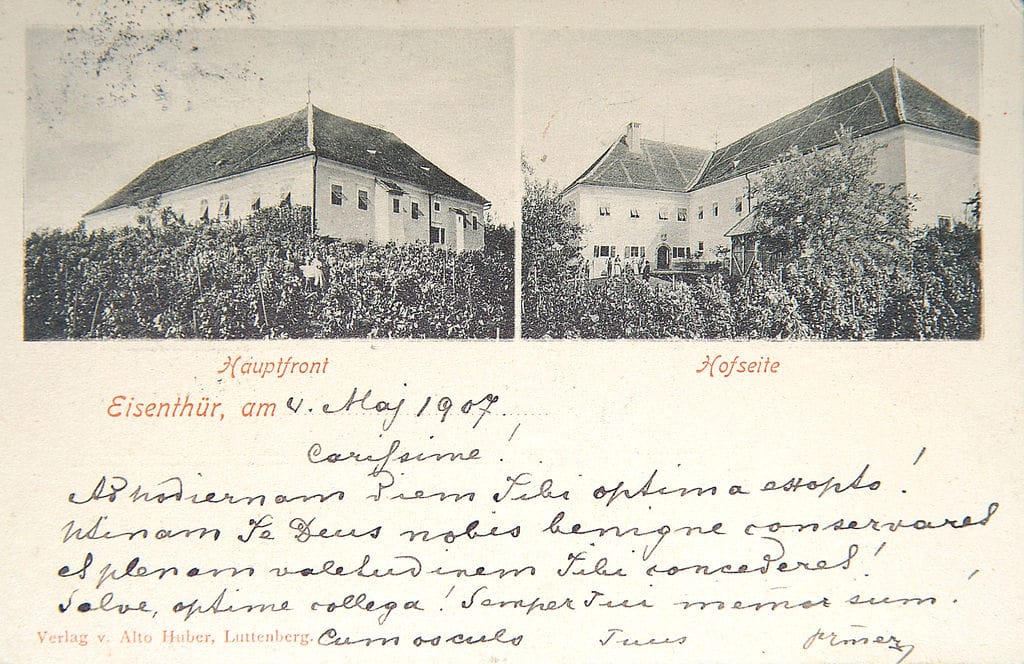 Hauptfront Hofseite
Eisenthür, am 4. Maj 1907
Carissime!
Ad hodiernam diem Tibi optima exopto!
Utinam Te Deus nobis benigne conservaret
et plenam valetudinem Tibi concederet!
Salve, optime collega! Semper Tui memor sum!
Verlag v. Alto Huber, Luttenberg. Cum osculo Tuus